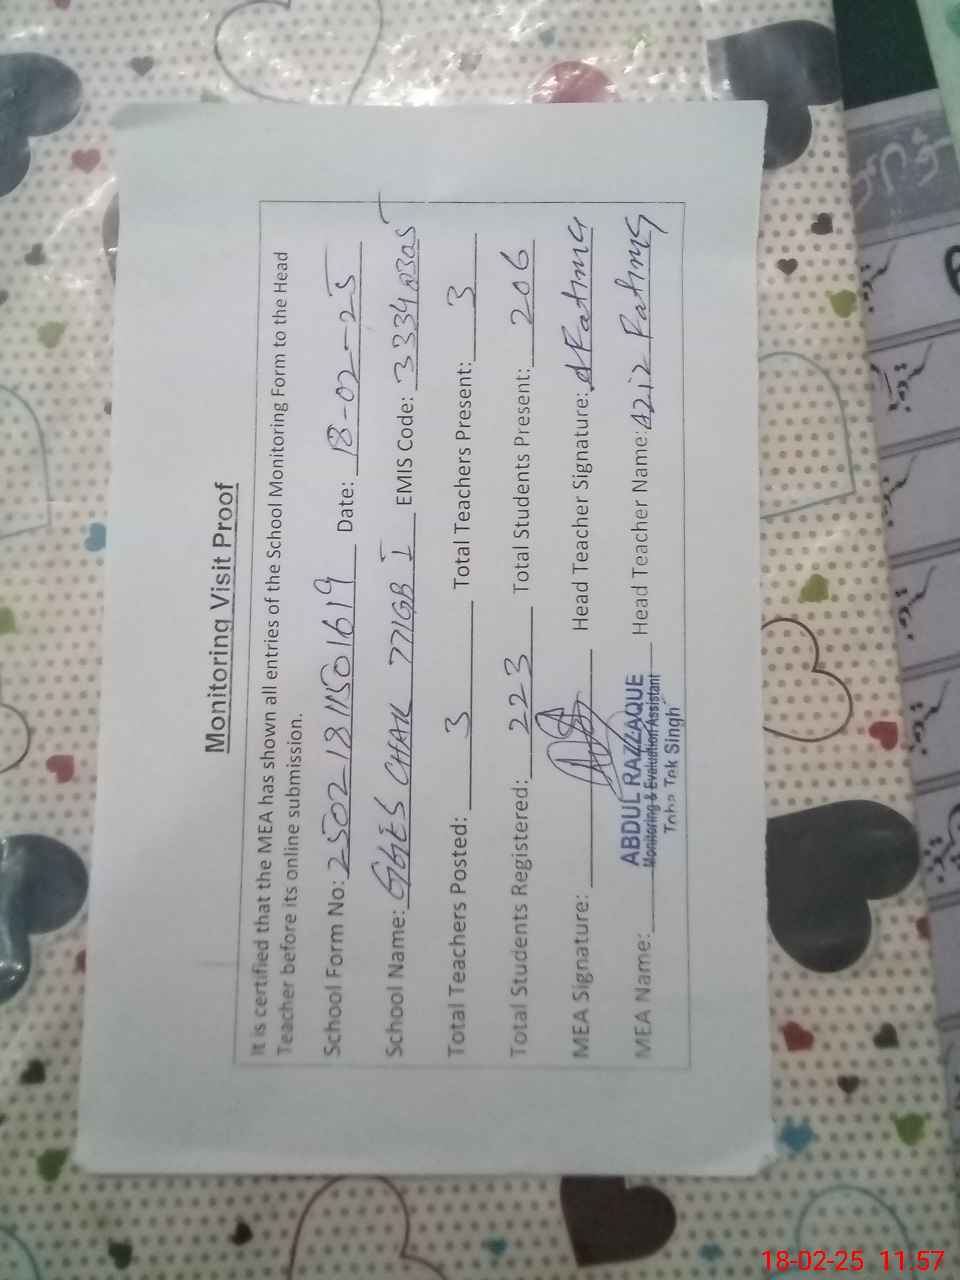 Monitoring Visit Proof
It is certified that the MEA has shown all entries of the School Monitoring Form to the Head
Teacher before its online submission.
School Form No: 25021811501619 Date: 18-02-25
School Name: GGES CHAK 771GB I EMIS Code: 33340305
Total Teachers Posted: 3 Total Teachers Present: 3
Total Students Registered: 223 Total Students Present: 206
MEA Signature: Head Teacher Signature: AFatma
MEA Name: ABDUL RAZZAQUE Head Teacher Name: Aziz Fatma
Monitoring & Evaluation Assistant
Toba Tek Singh
18-02-25 11.57